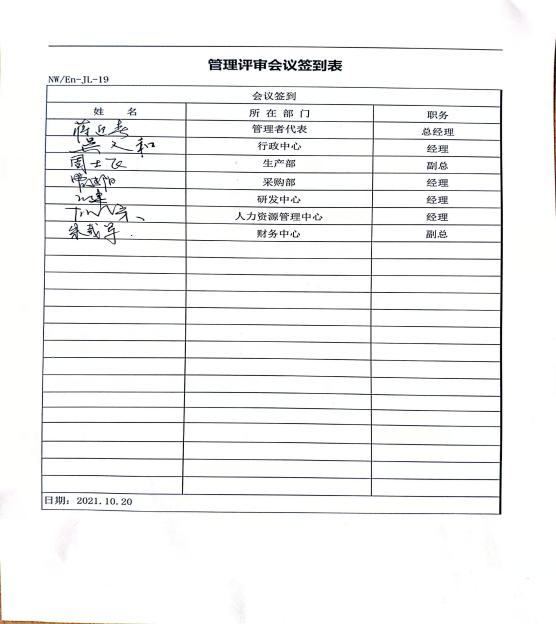 管理评审会议签到表
NW/En-JL-19
会议签到
姓 名 所 在 部 门 职务
管理者代表 总经理
吴文和 行政中心 经理
周士飞 生产部 副总
采购部 经理
研发中心 经理
人力资源管理中心 经理
财务中心 副总
日期：2021.10.20